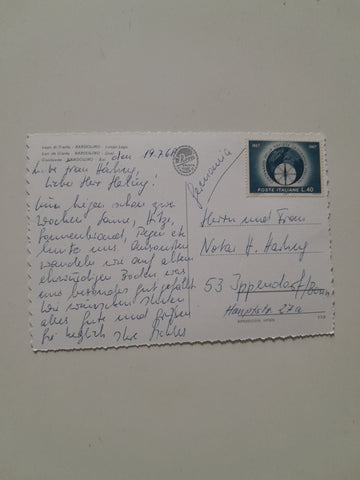 Lago di Garda - BARDOLINO - Lungo Lago
Lac de Garda - BARDOLINO - Quai
Gardasee - BARDOLINO -
den 19.7.67
Liebe Frau Hartwig,
Lieber Herr
wir liegen schon zwei
Wochen Sonne, Hitze,
Sonnenbrand, Regen etc.
hinter uns. Ansonsten
wandeln wir auf altem
ehrwürdigen Boden was
uns besonders gut gefällt.
Wir wünschen Ihnen
alles Gute und grüßen
Sie herzlich Ihre
Germania
1867 1967
POSTE ITALIANE L.40
Herrn und Frau
Notar H.
53 Ippendorf/Bonn
Hauptstr. 27a